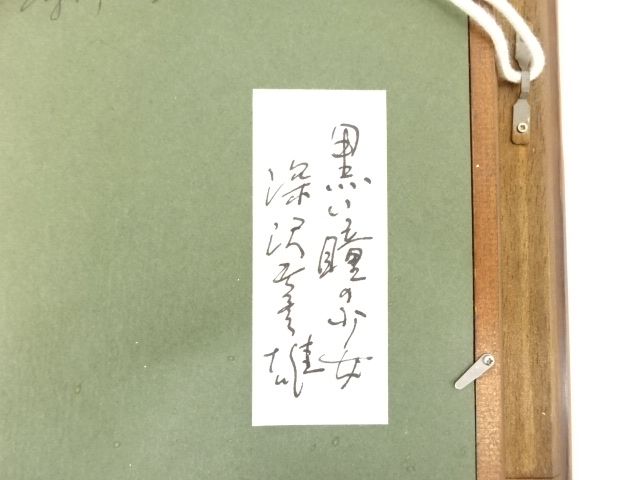 黒い瞳の少女
深沢孝雄